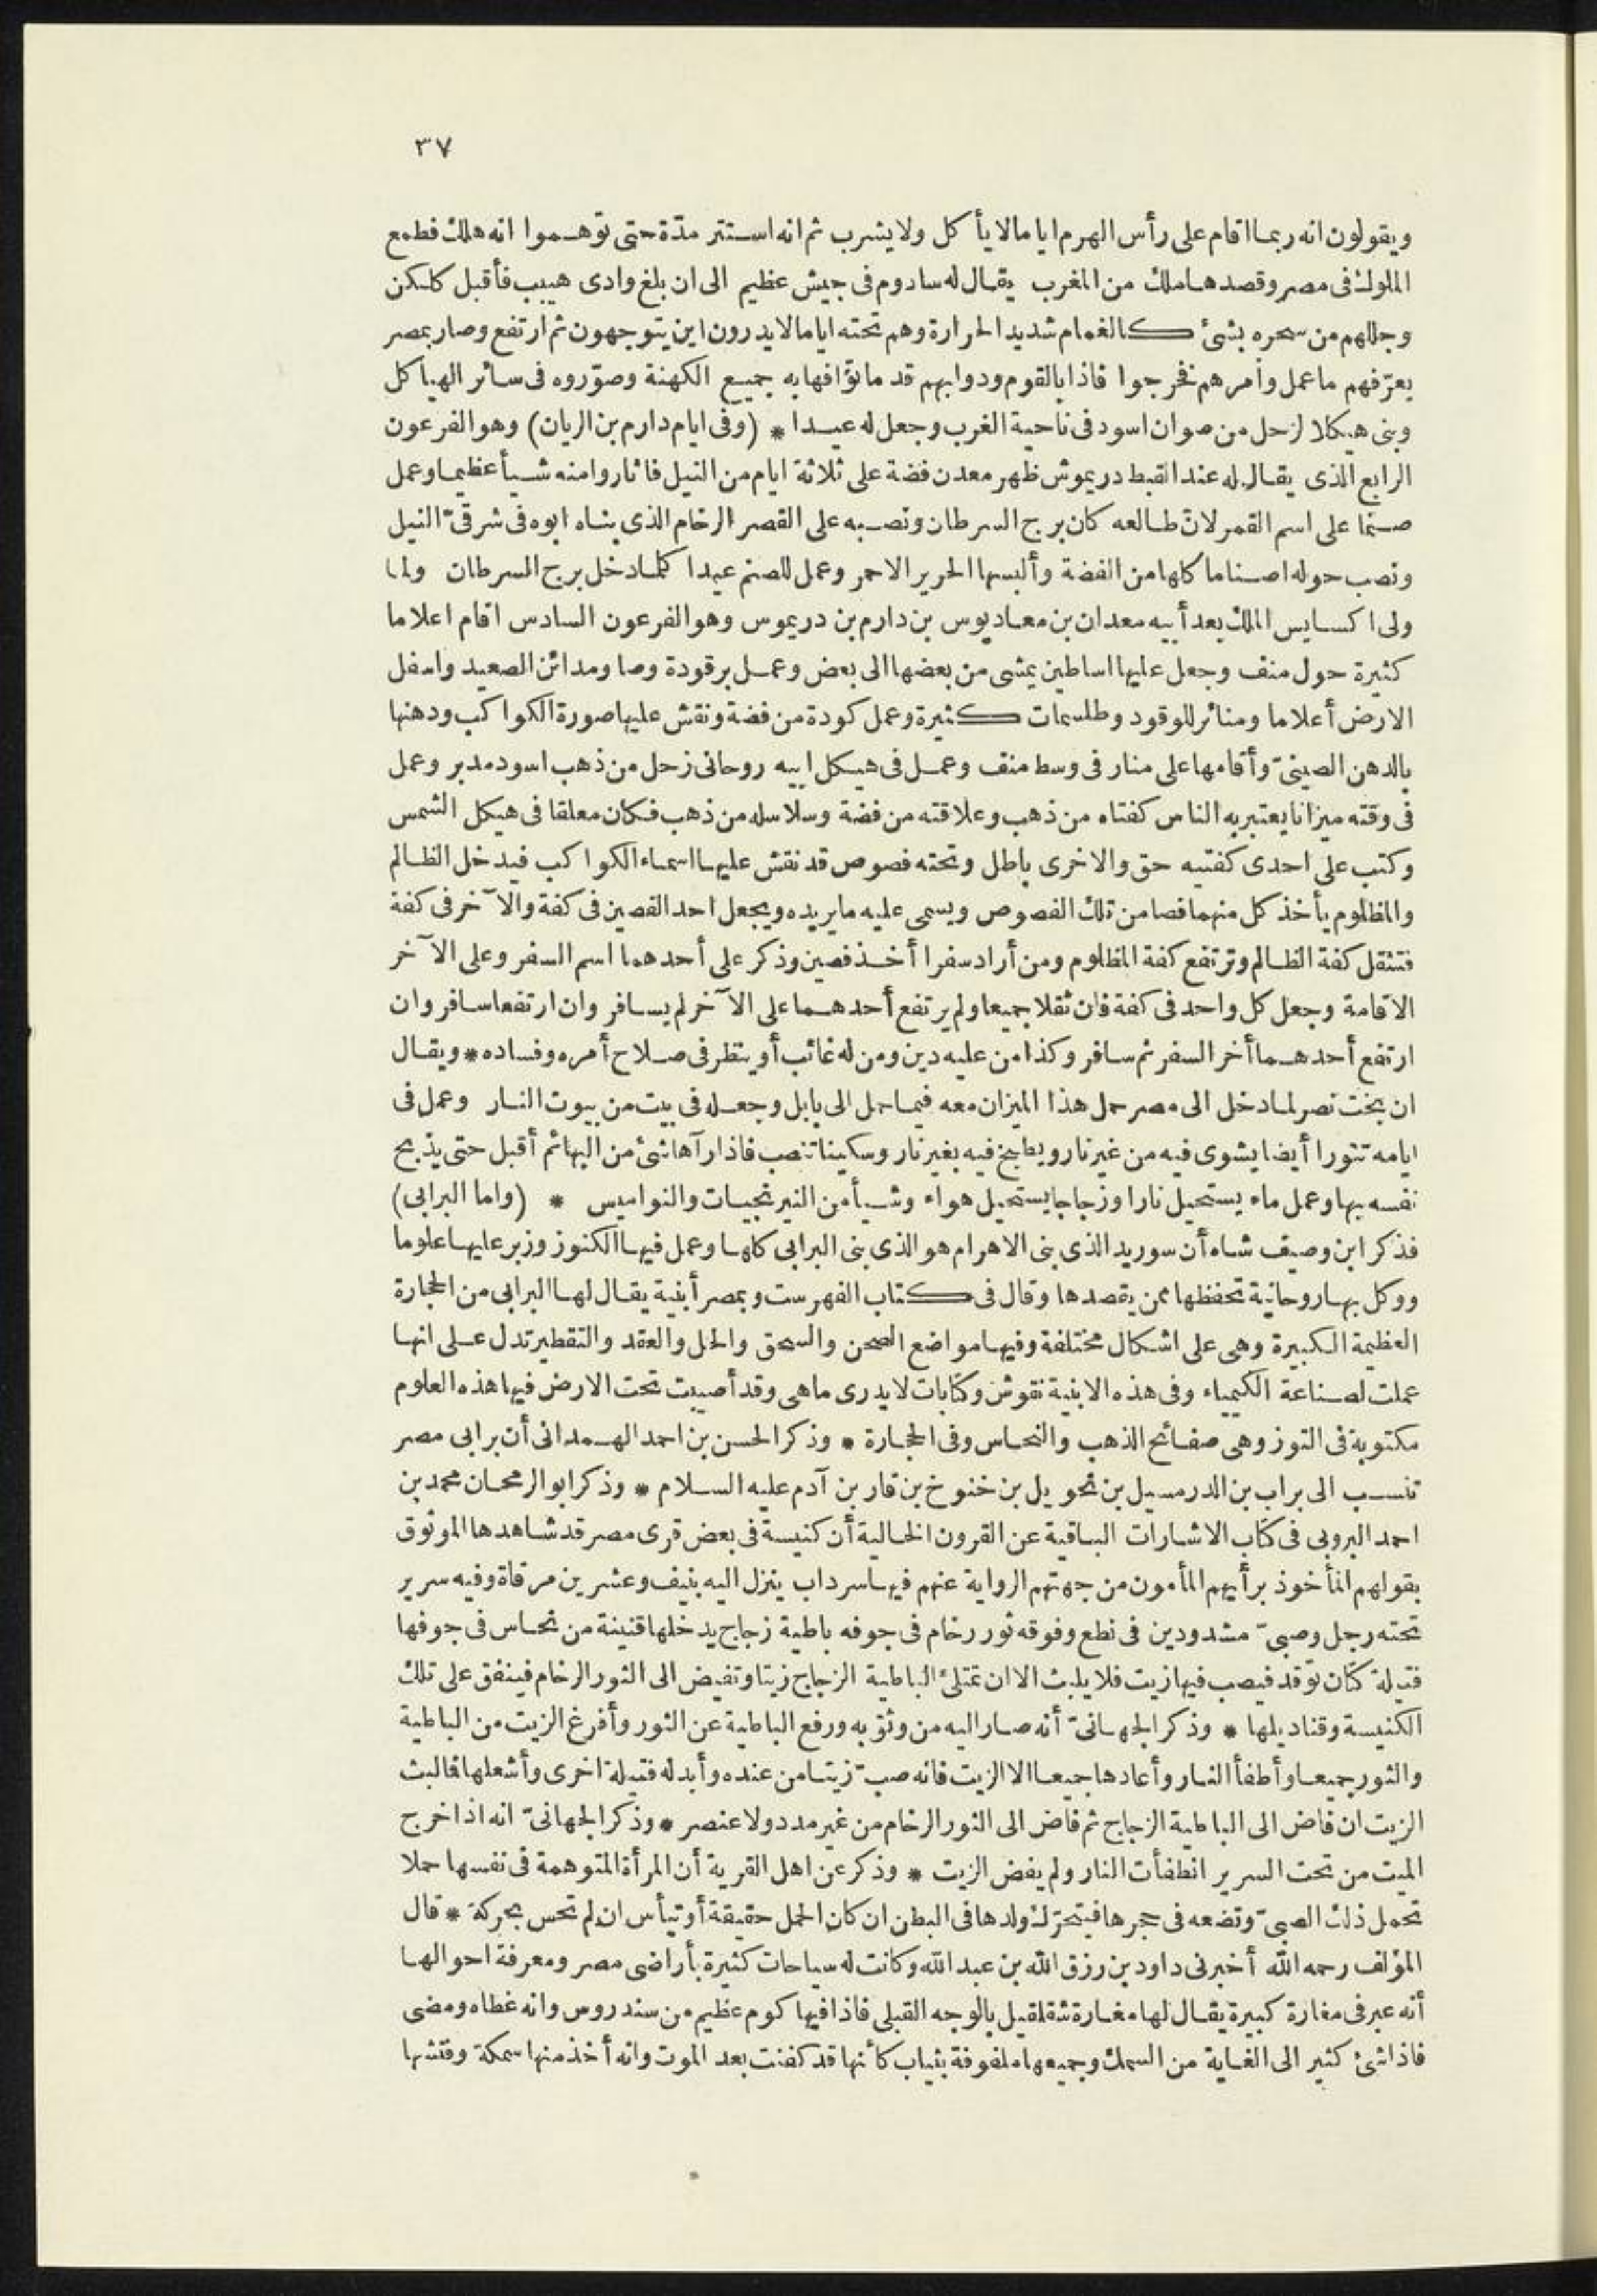 ٣٧
ويقولون انه ربما اقام على رأس الهرم اياما لا يأكل ولا يشرب ثم انه استتر مدّة حتى توّهموا انه هلك فطمع
الملوك فى مصر وقصدها ملك من المغرب يقال له سادوم فى جيش عظيم الى ان بلغ وادى هبيب فأقبل كلكن
وجللهم من سحره بشئ كالغمام شديد الحرارة وهم تحته اياما لا يدرون اين يتوجهون ثم ارتفع وصار بمصر
يعرّفهم ما عمل وأمرهم فخرجوا فاذا بالقوم ودوابهم قد ماتوا فهابه جميع الكهنة وصوّروه فى سائر الهياكل
وبنى هيكلا لزحل من صوان اسود فى ناحية الغرب وجعل له عيدا * (وفى ايام دارم بن الريان) وهو الفرعون
الرابع الذى يقال له عند القبط دريموش ظهر معدن فضة على ثلاثة ايام من النيل فاثاروا منه شيأ عظيما وعمل
صنما على اسم القمر لانّ طالعه كان برج السرطان ونصبه على القصر الرخام الذى بناه ابوه فى شرقىّ النيل
ونصب حوله اصناما كلها من الفضة وألبسها الحرير الاحمر وعمل للصنم عيدا كلما دخل برج السرطان ولما
ولى اكسايس الملك بعد أبيه معدان بن معاديوس بن دارم بن دريموس وهو الفرعون السادس اقام اعلاما
كثيرة حول منف وجعل عليها اساطين يمشى من بعضها الى بعض وعمل برقودة وصا ومدائن الصعيد واسفل
الارض أعلاما ومنائر للوقود وطلسمات كثيرة وعمل كودة من فضة ونقش عليها صورة الكواكب ودهنها
بالدهن الصينىّ وأقامها على منار فى وسط منف وعمل فى هيكل ابيه روحانى زحل من ذهب اسود مدبر وعمل
فى وقته ميزانا يعتبر به الناس كفتاه من ذهب وعلاقته من فضة وسلاسله من ذهب فكان معلقا فى هيكل الشمس
وكتب على احدى كفتيه حق والاخرى باطل وتحته فصوص قد نقش عليها اسماء الكواكب فيدخل الظالم
والمظلوم يأخذ كل منهما فصا من تلك الفصوص ويسمى عليه ما يريده ويجعل احد الفصين فى كفة والآخر فى كفة
فتثقل كفة الظالم وترتفع كفة المظلوم ومن أراد سفرا أخذ فصين وذكر على أحدهما اسم السفر وعلى الآخر
الاقامة وجعل كل واحد فى كفة فان ثقلا جميعا ولم يرتفع أحدهما على الآخر لم يسافر وان ارتفعا سافر وان
ارتفع أحدهما أخر السفر ثم سافر وكذا من عليه دين ومن له غائب أو ينظر فى صلاح أمره وفساده * ويقال
ان بخت نصر لما دخل الى مصر حمل هذا الميزان معه فيما حمل الى بابل وجعله فى بيت من بيوت النار وعمل فى
ايامه تنورا أيضا يشوى فيه من غير نار ويطبخ فيه بغير نار وسكينا تنصب فاذا رآها شئ من البهائم أقبل حتى يذبح
نفسه بها وعمل ماء يستحيل نارا وزجاجا يستحيل هواء وشيأ من النيرنجيات والنواميس * (واما البرابى)
فذكر ابن وصيف شاه أن سوريد الذى بنى الاهرام هو الذى بنى البرابى كلها وعمل فيها الكنوز وزبر عليها علوما
ووكل بها روحانية تحفظها ممن يقصدها وقال فى كتاب الفهرست وبمصر أبنية يقال لها البرابى من الحجارة
العظيمة الكبيرة وهى على اشكال مختلفة وفيها مواضع الصحن والسحق والحل والعقد والتقطير تدل على انها
عملت لصناعة الكيمياء وفى هذه الابنية نقوش وكتابات لا يدرى ما هى وقد أصيبت تحت الارض فيها هذه العلوم
مكتوبة فى التوز وهى صفائح الذهب والنحاس وفى الحجارة * وذكر الحسن بن احمد الهمدانى أن برابى مصر
تنسب الى براب بن الدرمسيل بن نحويل بن خنوخ بن قار بن آدم عليه السلام * وذكر ابو الريحان محمد بن
احمد البيرونى فى كتاب الاشارات الباقية عن القرون الخالية أن كنيسة فى بعض قرى مصر قد شاهدها الموثوق
بقولهم المأخوذ برأيهم المأمون من جهتهم الرواية عنهم فيها سرداب ينزل اليه بنيف وعشرين مرقاة وفيه سرير
تحته رجل وصبىّ مشدودين فى نطع وفوقه ثور رخام فى جوفه باطية زجاج يدخلها قنينة من نحاس فى جوفها
فتيلة كتان توقد فيصب فيها زيت فلا يلبث الا ان تمتلئ الباطية الزجاج زيتا وتفيض الى الثور الرخام فينفق على تلك
الكنيسة وقناديلها * وذكر الجهانىّ أنه صار اليه من وثق به ورفع الباطية عن الثور وأفرغ الزيت من الباطية
والثور جميعا وأطفأ النار وأعادها جميعا الا الزيت فانه صبّ زيتا من عنده وأبدله فتيلة اخرى وأشعلها فما لبث
الزيت ان فاض الى الباطية الزجاج ثم فاض الى الثور الرخام من غير مدد ولا عنصر * وذكر الجهانىّ انه اذا خرج
الميت من تحت السرير انطفأت النار ولم يفض الزيت * وذكر عن اهل القرية أن المرأة المتوهمة فى نفسها حملا
تحمل ذلك الصبىّ وتضعه فى حجرها فيتحرّك ولدها فى البطن ان كان الحمل حقيقة أو تيأس ان لم تحس بحركة * قال
المؤلف رحمه الله أخبرنى داود بن رزق الله بن عبد الله وكانت له سياحات كثيرة بأراضى مصر ومعرفة احوالها
أنه عبر فى مغارة كبيرة يقال لها مغارة شقلقيل بالوجه القبلى فاذا فيها كوم عظيم من سندروس وانه غطاه ومضى
فاذا شئ كثير الى الغاية من السمك وجميعها ملفوفة بثياب كأنها قد كفنت بعد الموت وانه أخذ منها سمكة وفتشها